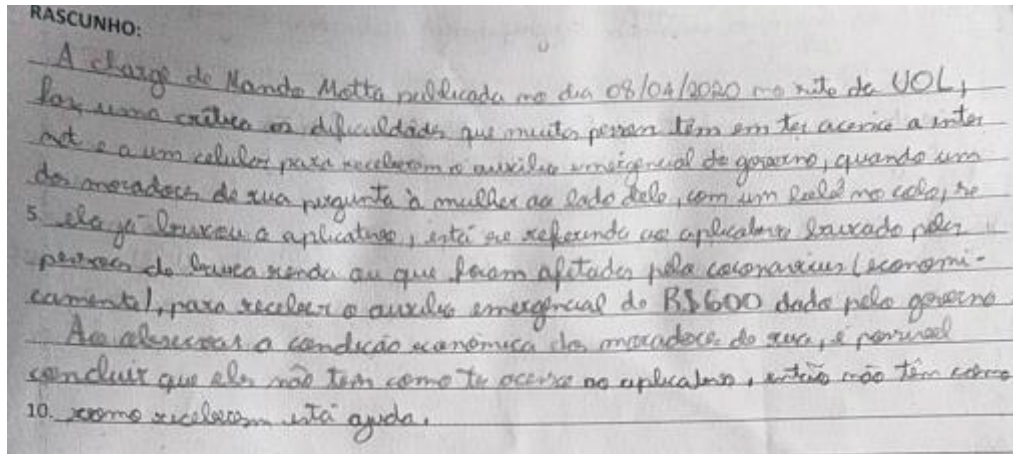 RASCUNHO:
A charge de Nando Motta publicada no dia 08/04/2020 no site da UOL,
faz uma crítica as dificuldades que muitas pessoas têm em ter acesso a inter
net e a um celular para receberem o auxílio emergencial do governo, quando um
dos moradores de rua pergunta à mulher ao lado dele, com um bebê no colo, se
5. ela já baixou o aplicativo, está se referindo ao aplicativo baixado pelas
pessoas de baixa renda ou que foram afetadas pelo coronavírus (economi-
camente), para receber o auxílio emergencial de R$600 dado pelo governo
Ao observar a condição econômica dos moradores de rua, é possível
concluir que eles não tem como ter acesso ao aplicativo, então não têm como
10. como receberem está ajuda.